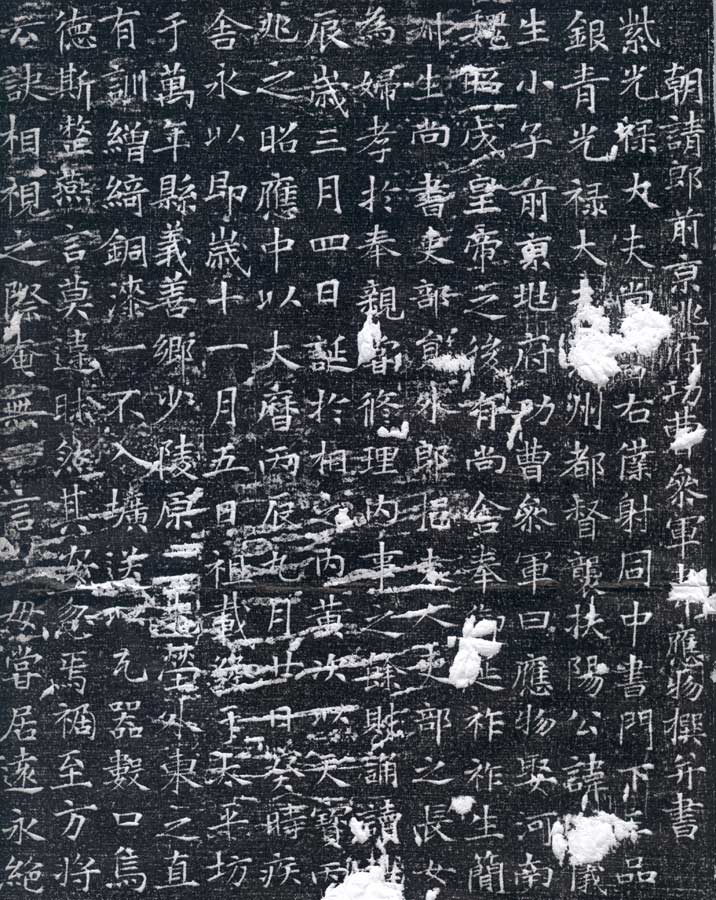 朝請郎前京兆府功曹參軍韋應物撰并書
紫光祿大夫尚右僕射同中書門下三品
銀青光祿大州都督襲扶陽公諱儀
生小子前京兆府功曹參軍曰應物娶河南
魏昭成皇帝之後有尚舍奉御延祚祚生簡
州生尚書吏部員外郎挹夫人吏部之長女
為婦孝於奉親嘗修理內事之餘則誦讀
辰歲三月四日誕於相之內黃次以天寶丙
兆之昭應中以大曆丙辰九月廿日癸時疾
舍永以即歲十一月五日祖載終于太平坊
于萬年縣義善鄉少陵原先塋外東之直
有訓繒綺銅漆一不入壙送以瓦器數口烏
德斯整燕言莫違昧然其安忽焉禍至方將
云訣相視之際奄無一言以毋嘗居遠永絕